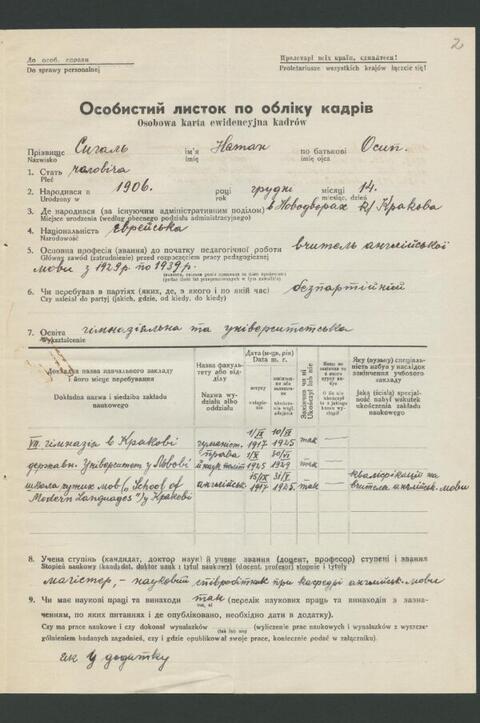 2
До особ. справи
Do sprawy personalnej
Пролетарі всіх країн, єднайтеся!
Proletariusze wszystkich krajów łączcie się!
Особистий листок по обліку кадрів
Osobowa karta ewidencyjna kadrów
Прізвище Сигаль ім'я Натан по батькові Осип.
Nazwisko imię imię ojca
1. Стать чоловіча
Płeć
2. Народився в 1906. році грудні місяці 14.
Urodzony w rok miesiąc, dzień
3. Де народився (за існуючим адміністративним поділом) в Новодворах к/Кракова
Miejsce urodzenia (według obecnego podziału administracyjnego)
4. Національність Єврейська
Narodowość
5. Основна професія (звання) до початку педагогічної роботи вчитель англійської
Główny zawód (zatrudnienie) przed rozpoczęciem pracy pedagogicznej
мови з 1929 р по 1939 р.
6. Чи перебував в партіях (яких, де, з якого і по який час) безпартійний
Czy należał do partyj (jakich, gdzie, od kiedy, do kiedy)
7. Освіта гімназіальна та університетська
Wykształcenie
Докладна назва навчального закладу і його місце перебування
Dokładna nazwa i siedziba zakładu naukowego
Назва факультету або відділу
Nazwa wydziału albo oddziału
Дата (м-ця, рік)
Data m. r.
вступу
Закінчив чи ні
Ukończył czy nie
Яку (вузьку) спеціальність набув у наслідок закінчення учбового закладу
Jaką (ścisłą) specjalność nabył wskutek ukończenia zakładu naukowego
VII. гімназія в Кракові гуманіст. 1/IX 1917 30/VI 1925 так — —
державн. Університет у Львові права 1/X 1925 30/VI 1929 так — —
школа чужих мов („School of англійськ. 15/IX 1917 31/V 1925 так — кваліфікації на
Modern Languages") у Кракові вчителя англійськ. мови
8. Учена ступінь (кандидат, доктор наук) й учене звання (доцент, професор) ступені і звання
Stopień naukowy (kandydat, doktor nauk i tytuł naukowy) (docent, profesor) stopnie i tytuły
магістер, – науковий співробітник при кафедрі англійськ. мови
9. Чи має наукові праці та винаходи так (перелік наукових праць та винаходів з зазначенням, по яких питаннях і де опубліковано, необхідно дати в додатку).
Czy ma prace naukowe i czy dokonał wynalazków (wyliczenie prac naukowych i wynalazków z wyszczególnieniem badanych zagadnień, czy i gdzie opublikował swoje prace, koniecznie podać w załączniku).
(tak lub nie)
як у додатку